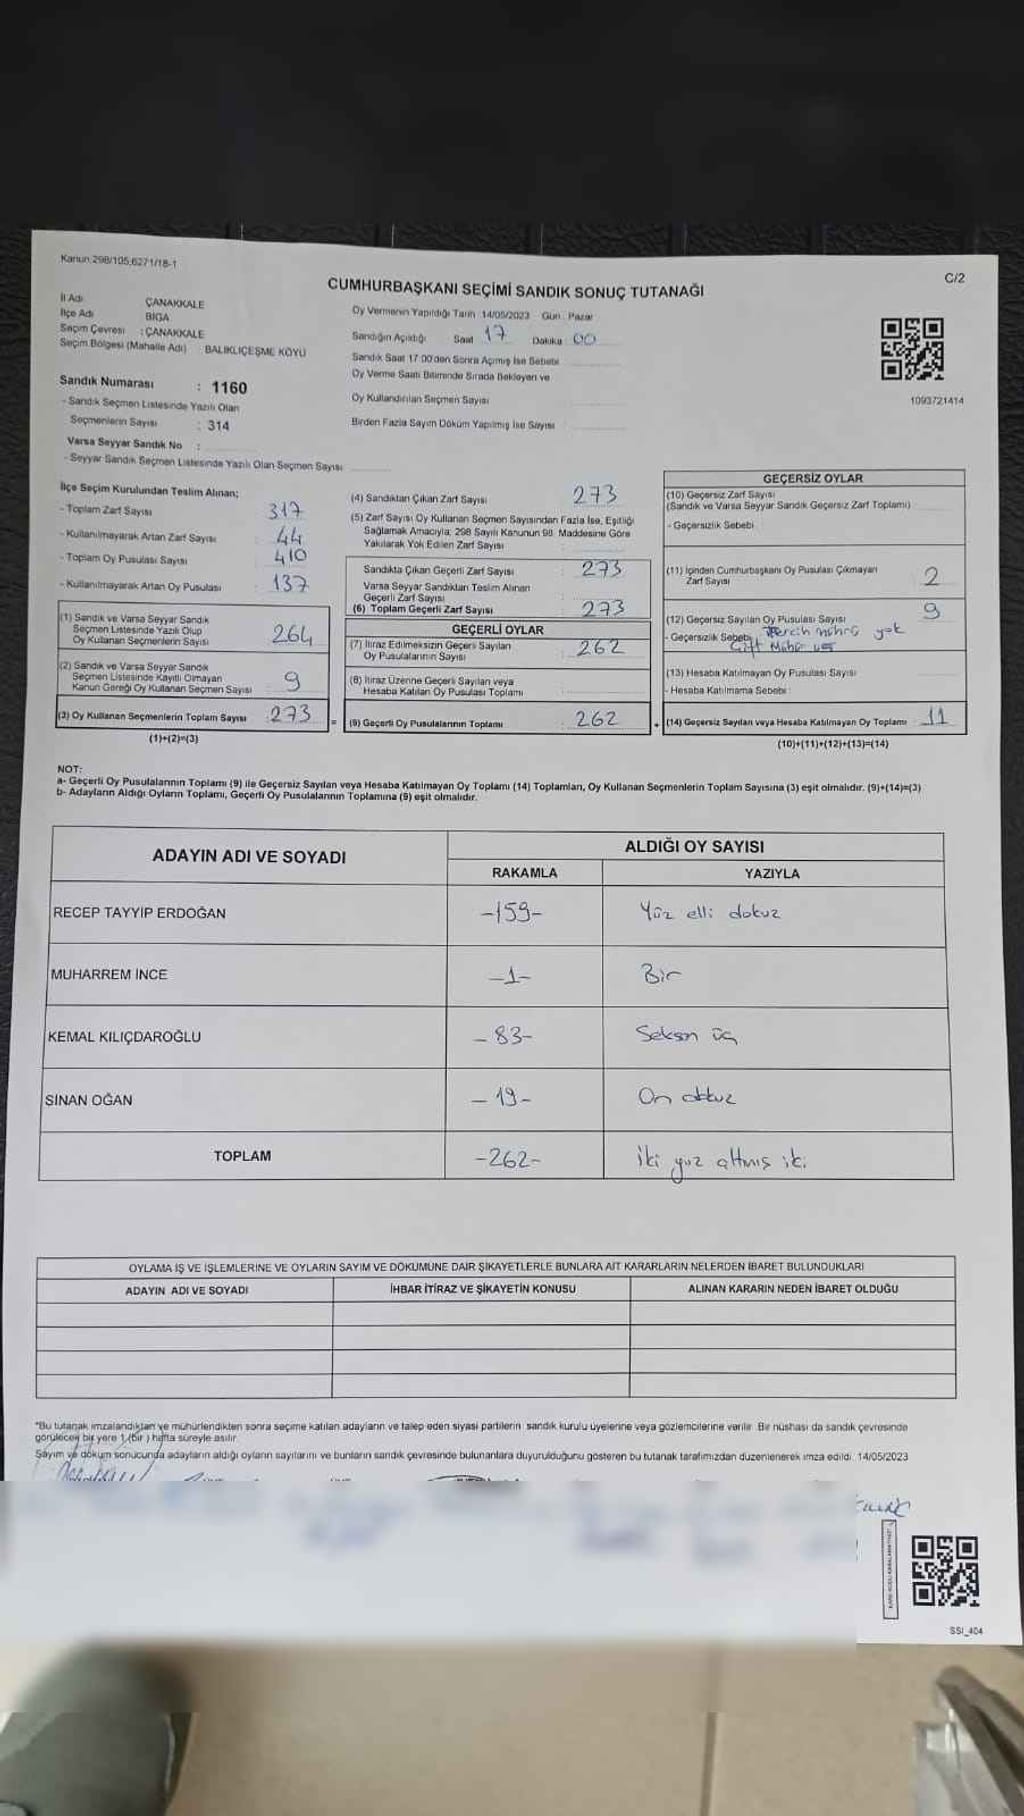 Kanun:298/105,6271/18-1
C/2
CUMHURBAŞKANI SEÇİMİ SANDIK SONUÇ TUTANAĞI
İl Adı ÇANAKKALE
İlçe Adı BİGA
Seçim Çevresi : ÇANAKKALE
Seçim Bölgesi (Mahalle Adı) BALIKLIÇEŞME KÖYÜ
Sandık Numarası : 1160
- Sandık Seçmen Listesinde Yazılı Olan
Seçmenlerin Sayısı : 314
Varsa Seyyar Sandık No :
- Seyyar Sandık Seçmen Listesinde Yazılı Olan Seçmen Sayısı
Oy Vermenin Yapıldığı Tarih 14/05/2023 Gün : Pazar
Sandığın Açıldığı Saat 17 Dakika 00
Sandık Saat 17:00'den Sonra Açılmış İse Sebebi
Oy Verme Saati Bitiminde Sırada Bekleyen ve
Oy Kullandırılan Seçmen Sayısı
Birden Fazla Sayım Döküm Yapılmış İse Sayısı
1093721414
İlçe Seçim Kurulundan Teslim Alınan;
- Toplam Zarf Sayısı 317
- Kullanılmayarak Artan Zarf Sayısı 44
- Toplam Oy Pusulası Sayısı 410
- Kullanılmayarak Artan Oy Pusulası 137
(1) Sandık ve Varsa Seyyar Sandık
Seçmen Listesinde Yazılı Olup
Oy Kullanan Seçmenlerin Sayısı 264
(2) Sandık ve Varsa Seyyar Sandık
Seçmen Listesinde Kayıtlı Olmayan
Kanun Gereği Oy Kullanan Seçmen Sayısı 9
(3) Oy Kullanan Seçmenlerin Toplam Sayısı : 273
(1)+(2)=(3)
(4) Sandıktan Çıkan Zarf Sayısı 273
(5) Zarf Sayısı Oy Kullanan Seçmen Sayısından Fazla İse, Eşitliği
Sağlamak Amacıyla; 298 Sayılı Kanunun 98. Maddesine Göre
Yakılarak Yok Edilen Zarf Sayısı :
Sandıkta Çıkan Geçerli Zarf Sayısı : 273
Varsa Seyyar Sandıktan Teslim Alınan
Geçerli Zarf Sayısı
(6) Toplam Geçerli Zarf Sayısı : 273
GEÇERLİ OYLAR
(7) İtiraz Edilmeksizin Geçerli Sayılan
Oy Pusulalarının Sayısı : 262
(8) İtiraz Üzerine Geçerli Sayılan veya
Hesaba Katılan Oy Pusulası Toplamı
= (9) Geçerli Oy Pusulalarının Toplamı : 262
GEÇERSİZ OYLAR
(10) Geçersiz Zarf Sayısı
(Sandık ve Varsa Seyyar Sandık Geçersiz Zarf Toplamı)
- Geçersizlik Sebebi
(11) İçinden Cumhurbaşkanı Oy Pusulası Çıkmayan
Zarf Sayısı 2
(12) Geçersiz Sayılan Oy Pusulası Sayısı 9
- Geçersizlik Sebebi Tercih mührü yok
Çift Mühür var
(13) Hesaba Katılmayan Oy Pusulası Sayısı
- Hesaba Katılmama Sebebi :
+ (14) Geçersiz Sayılan veya Hesaba Katılmayan Oy Toplamı 11
(10)+(11)+(12)+(13)=(14)
NOT:
a- Geçerli Oy Pusulalarının Toplamı (9) ile Geçersiz Sayılan veya Hesaba Katılmayan Oy Toplamı (14) Toplamları, Oy Kullanan Seçmenlerin Toplam Sayısına (3) eşit olmalıdır. (9)+(14)=(3)
b- Adayların Aldığı Oyların Toplamı, Geçerli Oy Pusulalarının Toplamına (9) eşit olmalıdır.
ADAYIN ADI VE SOYADI ALDIĞI OY SAYISI
RAKAMLA YAZIYLA
RECEP TAYYİP ERDOĞAN -159- Yüz elli dokuz
MUHARREM İNCE -1- Bir
KEMAL KILIÇDAROĞLU -83- Seksen üç
SİNAN OĞAN -19- On dokuz
TOPLAM -262- İki yüz altmış iki
OYLAMA İŞ VE İŞLEMLERİNE VE OYLARIN SAYIM VE DÖKÜMÜNE DAİR ŞİKAYETLERLE BUNLARA AİT KARARLARIN NELERDEN İBARET BULUNDUKLARI
ADAYIN ADI VE SOYADI İHBAR İTİRAZ VE ŞİKAYETİN KONUSU ALINAN KARARIN NEDEN İBARET OLDUĞU
*Bu tutanak imzalandıktan ve mühürlendikten sonra seçime katılan adayların ve talep eden siyasi partilerin sandık kurulu üyelerine veya gözlemcilerine verilir. Bir nüshası da sandık çevresinde
görülecek bir yere 1 (bir) hafta süreyle asılır.
Sayım ve döküm sonucunda adayların aldığı oyların sayılarını ve bunların sandık çevresinde bulunanlara duyurulduğunu gösteren bu tutanak tarafımızdan düzenlenerek imza edildi. 14/05/2023
SSI_404